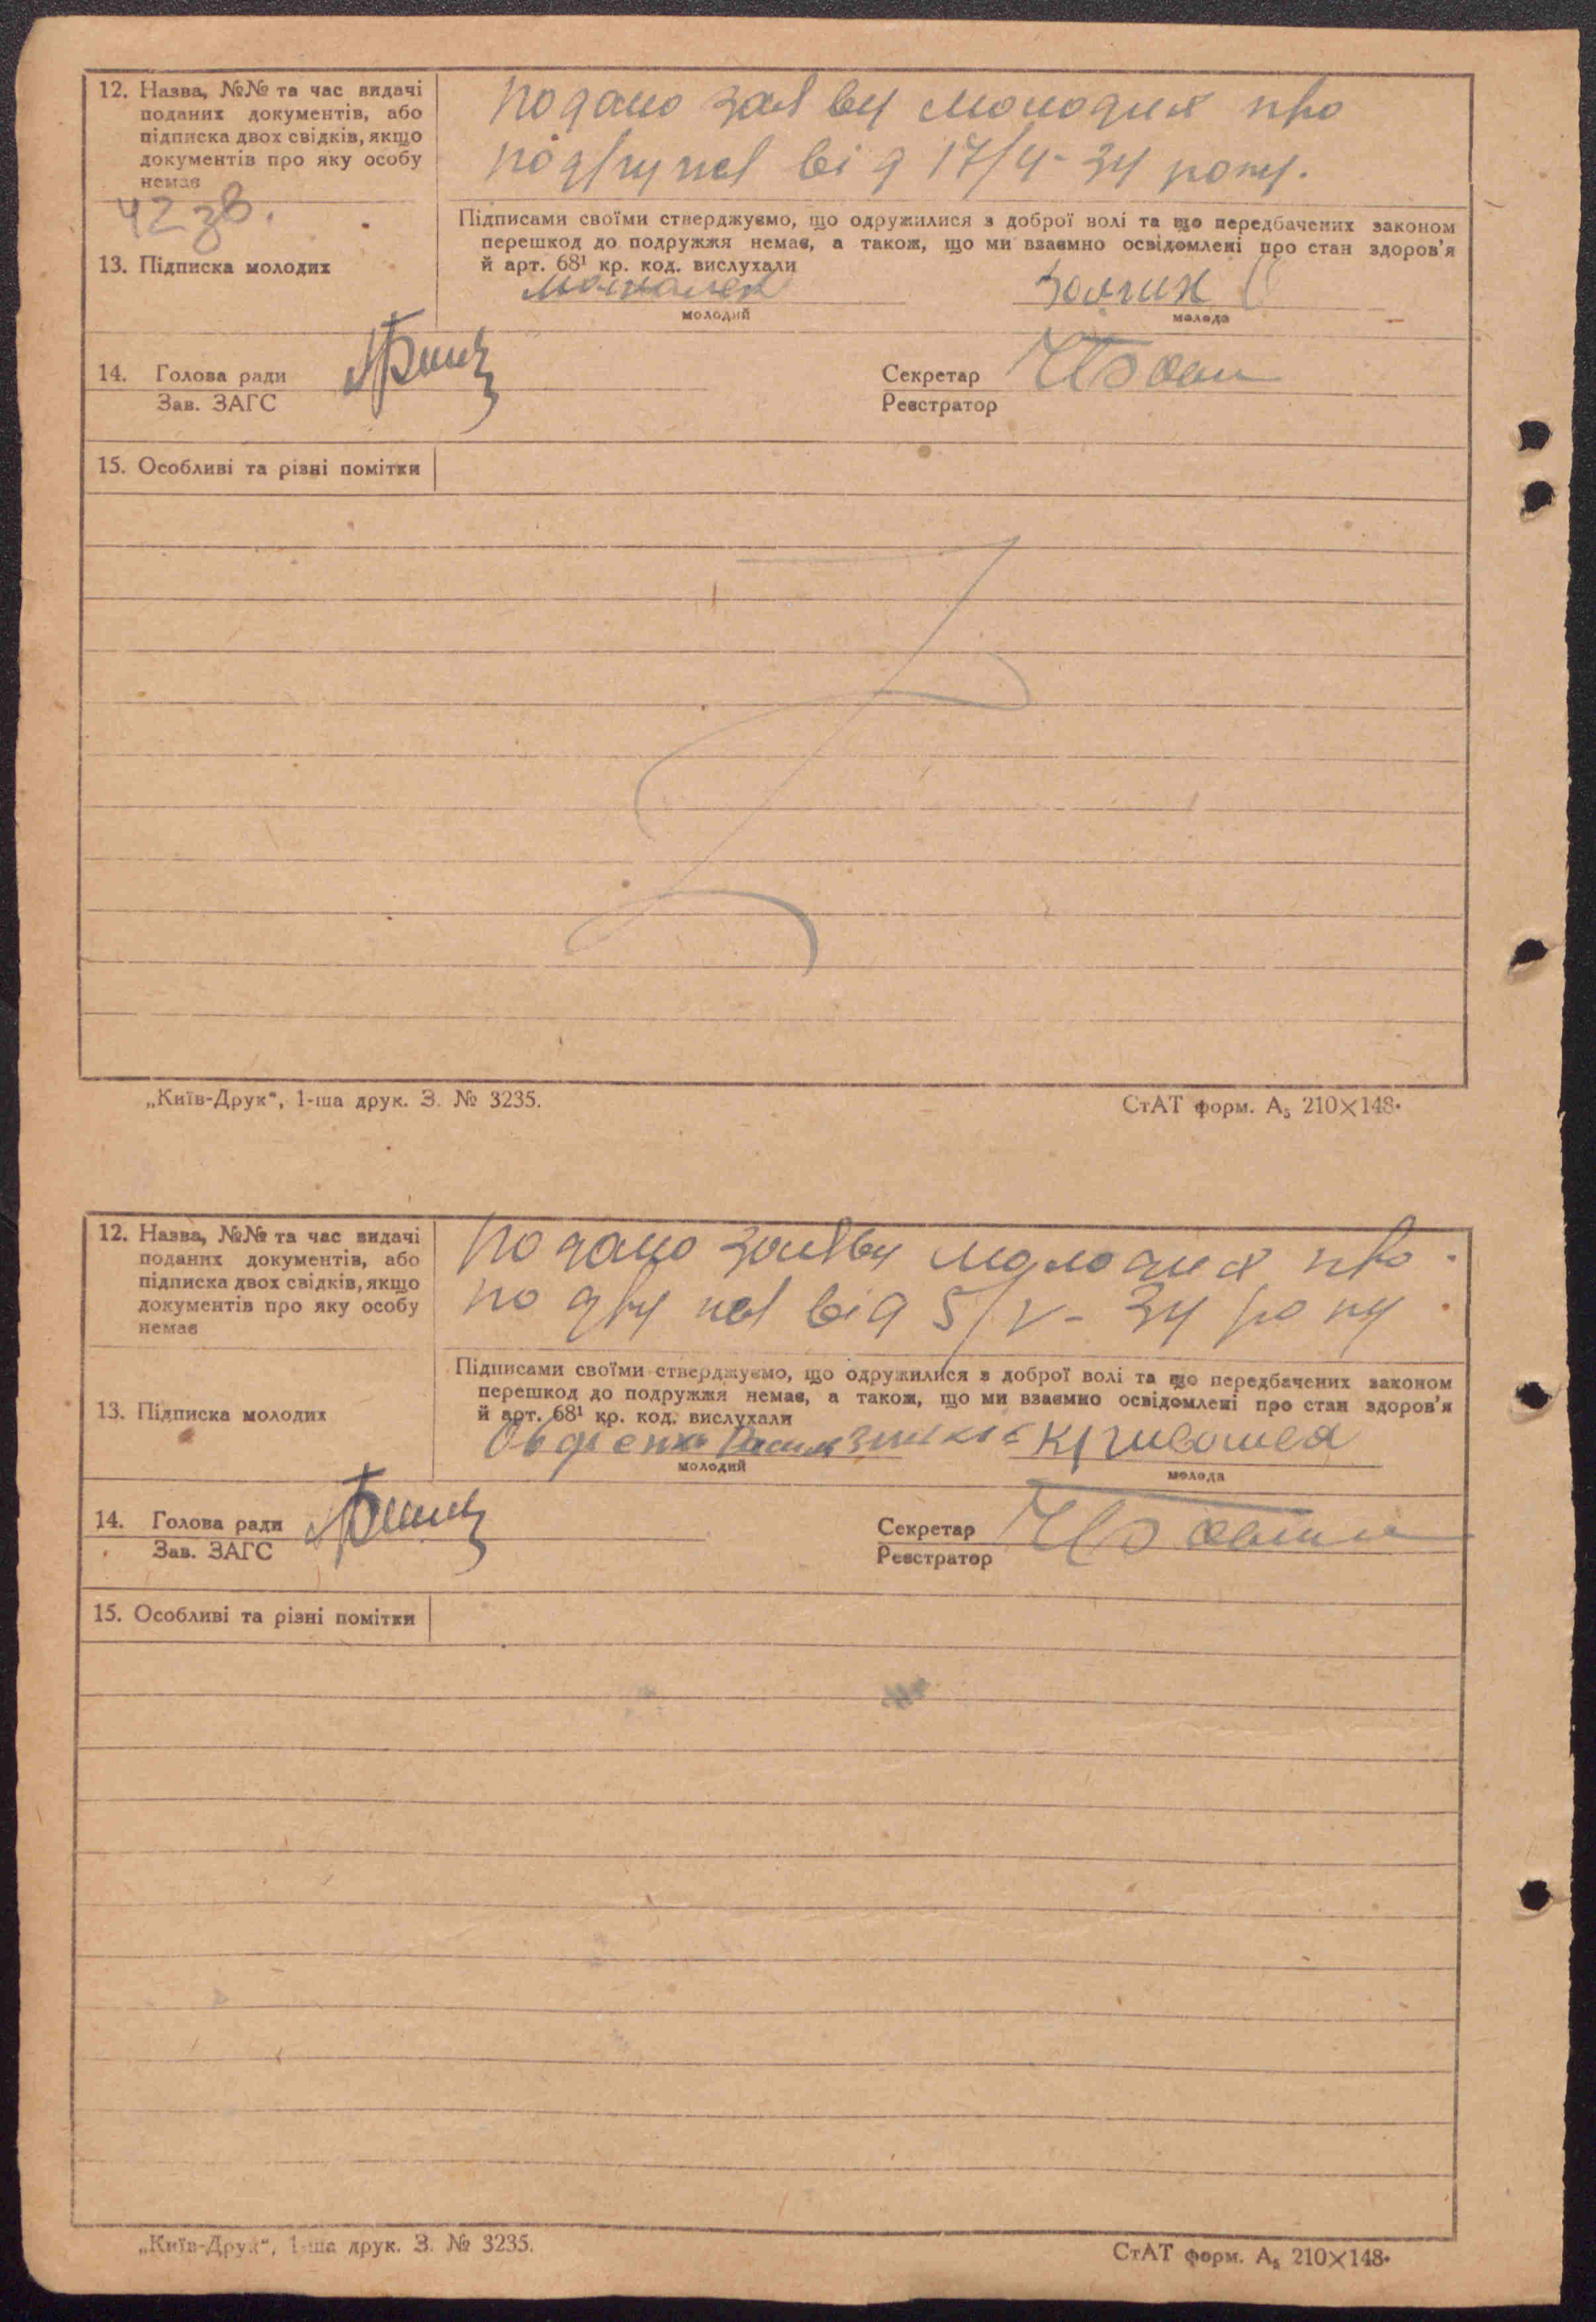 12. Назва, №№ та час видачі
поданих документів, або
підписка двох свідків, якщо
документів про яку особу
немає
подано заяву молодия про
подружя від 17/4-34 року.
42 зв.
13. Підписка молодих
Підписами своїми стверджуємо, що одружилися з доброї волі та що передбачених законом
перешкод до подружжя немає, а також, що ми взаємно освідомлені про стан здоров'я
й арт. 68¹ кр. код. вислухали
молодий
молода
14. Голова ради
Зав. ЗАГС
Секретар
Реєстратор
15. Особливі та різні помітки
„Київ-Друк“, 1-ша друк. З. № 3235.
СтАТ форм. А₅ 210×148·
12. Назва, №№ та час видачі
поданих документів, або
підписка двох свідків, якщо
документів про яку особу
немає
подано заяву молодия про
подружя від 5/V-34 року.
13. Підписка молодих
Підписами своїми стверджуємо, що одружилися з доброї волі та що передбачених законом
перешкод до подружжя немає, а також, що ми взаємно освідомлені про стан здоров'я
й арт. 68¹ кр. код. вислухали
молодий
молода
14. Голова ради
Зав. ЗАГС
Секретар
Реєстратор
15. Особливі та різні помітки
„Київ-Друк“, 1-ша друк. З. № 3235.
СтАТ форм. А₅ 210×148·